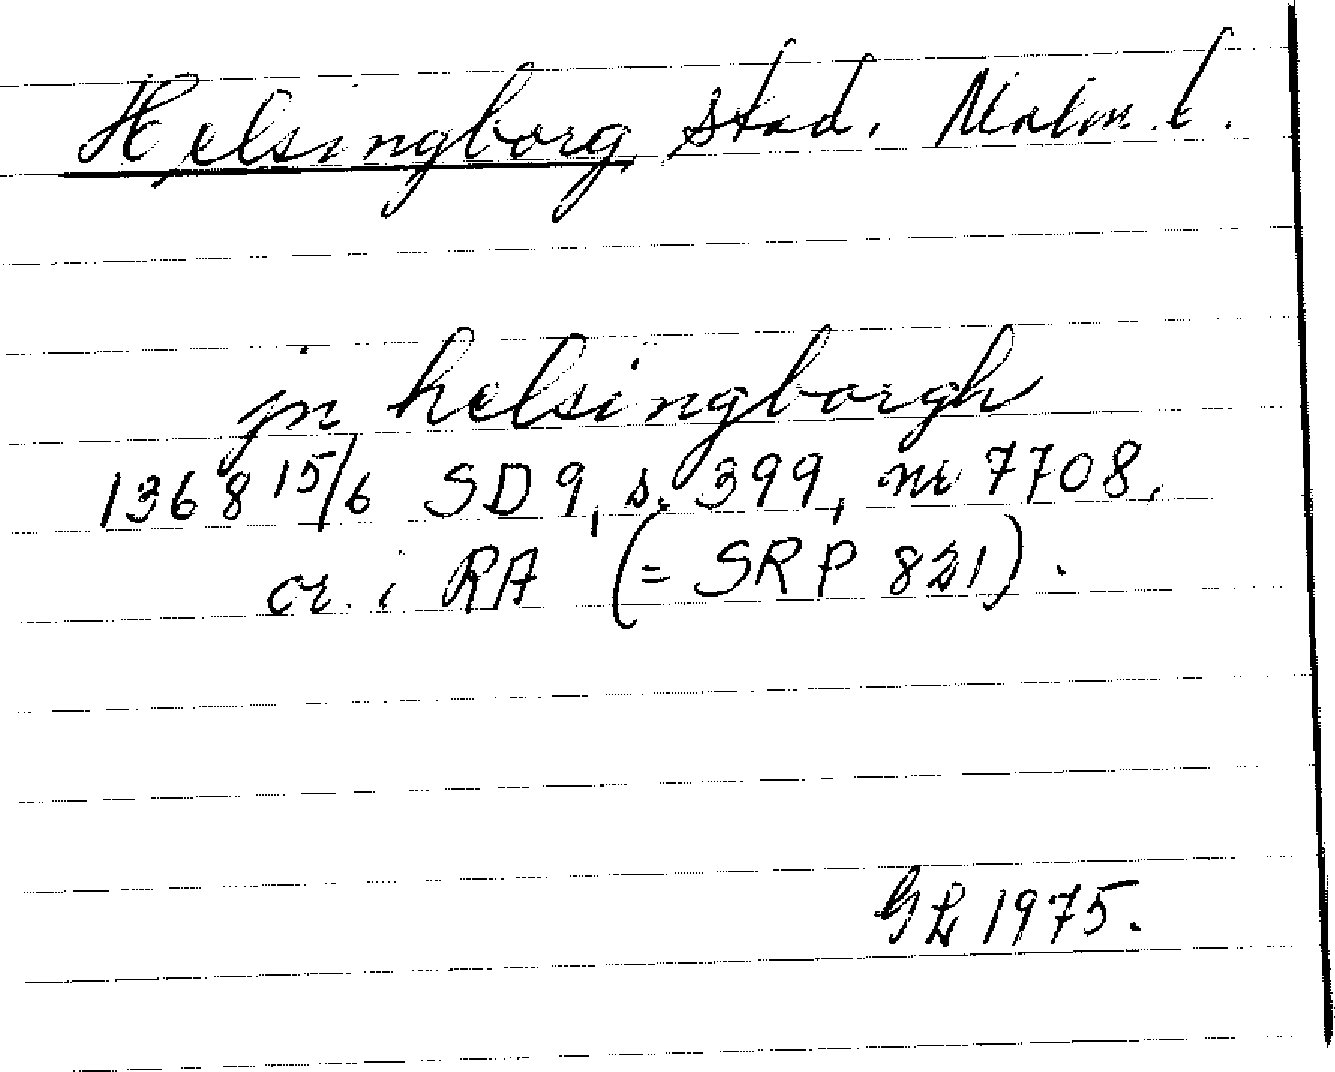 Helsingborg stad. Malm. l.
jn helsingborgh
1368 15/6 SD 9, s. 399, nr 7708,
or. i RA (= SRP 821).
GL 1975.